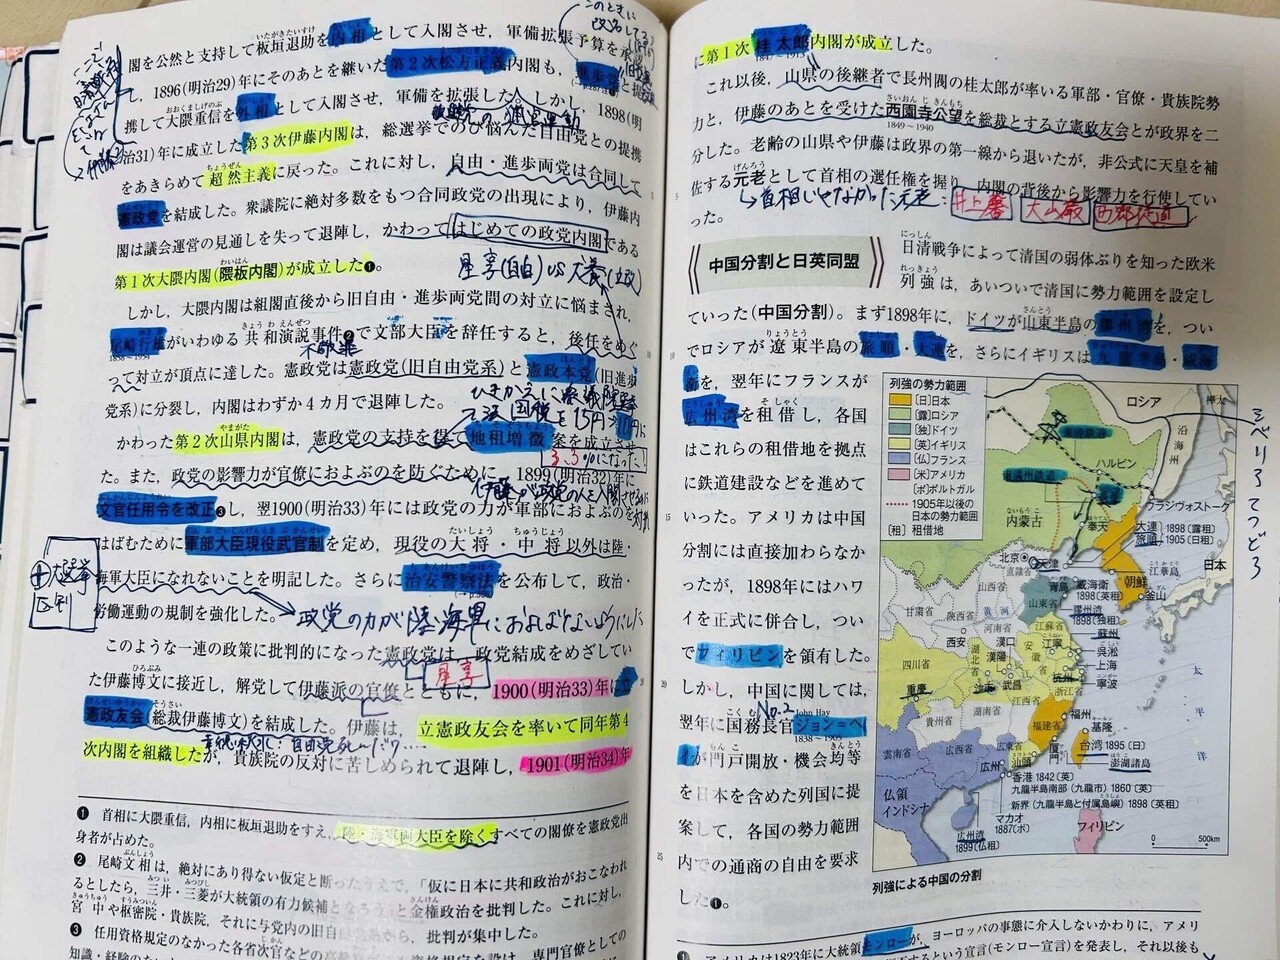 閣を公然と支持して板垣退助を内相として入閣させ，軍備拡張予算を承認
し，1896(明治29)年にそのあとを継いだ第2次松方正義内閣も，進歩党と提
携して大隈重信を外相として入閣させ，軍備を拡張した。しかし，1898(明
治31)年に成立した第3次伊藤内閣は，総選挙でのび悩んだ自由党との提携
をあきらめて超然主義に戻った。これに対し，自由・進歩両党は合同して
憲政党を結成した。衆議院に絶対多数をもつ合同政党の出現により，伊藤内
閣は議会運営の見通しを失って退陣し，かわってはじめての政党内閣である
第1次大隈内閣(隈板内閣)が成立した❶。
星亨(自由)VS
しかし，大隈内閣は組閣直後から旧自由・進歩両党間の対立に悩まされ，
尾崎行雄がいわゆる共和演説事件❷で文部大臣を辞任すると，後任をめぐ
不敬罪
って対立が頂点に達した。憲政党は憲政党(旧自由党系)と憲政本党(旧進歩
党系)に分裂し，内閣はわずか4カ月で退陣した。
かわった第2次山県内閣は，憲政党の支持を得て地租増徴案を成立させ
3.3%になった！
た。また，政党の影響力が官僚におよぶのを防ぐために，1899(明治32)年に
文官任用令を改正❸し，翌1900(明治33)年には政党の力が軍部におよぶのを
はばむために軍部大臣現役武官制を定め，現役の大将・中将以外は陸・
海軍大臣になれないことを明記した。さらに治安警察法を公布して，政治・
労働運動の規制を強化した。
政党の力が陸海軍におよばないようにした
このような一連の政策に批判的になった憲政党は，政党結成をめざしてい
星亨
た伊藤博文に接近し，解党して伊藤派の官僚とともに，1900(明治33)年に立
憲政友会(総裁伊藤博文)を結成した。伊藤は，立憲政友会を率いて同年第4
次内閣を組織したが，貴族院の反対に苦しめられて退陣し，1901(明治34)年
❶ 首相に大隈重信，内相に板垣退助をすえ，陸・海軍両大臣を除くすべての閣僚を憲政党出
身者が占めた。
❷ 尾崎文相は，絶対にあり得ない仮定と断ったうえで，「仮に日本に共和政治がおこなわれ
るとしたら，三井・三菱が大統領の有力候補となろう」と金権政治を批判した。これに対し，
宮中や枢密院・貴族院，それに与党内の旧自由党系から，批判が集中した。
❸ 任用資格規定のなかった各省次官などの高級官
に第1次桂太郎内閣が成立した。
これ以後，山県の後継者で長州閥の桂太郎が率いる軍部・官僚・貴族院勢
力と，伊藤のあとを受けた西園寺公望を総裁とする立憲政友会とが政界を二
1849～1940
分した。老齢の山県や伊藤は政界の第一線から退いたが，非公式に天皇を補
佐する元老として首相の選任権を握り，内閣の背後から影響力を行使してい
った。
首相じゃなかった元老：井上馨 大山巌 西郷従道
中国分割と日英同盟
日清戦争によって清国の弱体ぶりを知った欧米
列強は，あいついで清国に勢力範囲を設定し
ていった(中国分割)。まず1898年に，ドイツが山東半島の膠州湾を，つい
でロシアが遼東半島の旅順・大連を，さらにイギリスは九龍半島・威海
衛を，翌年にフランスが
広州湾を租借し，各国
はこれらの租借地を拠点
に鉄道建設などを進めて
いった。アメリカは中国
分割には直接加わらなか
ったが，1898年にはハワ
イを正式に併合し，つい
でフィリピンを領有した。
しかし，中国に関しては，
No.2 John Hay
翌年に国務長官ジョン＝ヘ
1838～1905
イが門戸開放・機会均等
を日本を含めた列国に提
案して，各国の勢力範囲
内での通商の自由を要求
した❶。
列強の勢力範囲
[日]日本
[露]ロシア
[独]ドイツ
[英]イギリス
[仏]フランス
[米]アメリカ
[ポ]ポルトガル
1905年以後の
日本の勢力範囲
[租] 租借地
ロシア
沿海州
東清鉄道
ハルビン
南満州鉄道
長春
ウラジヴォストーク
内蒙古
奉天
大連 1898(露租)
旅順 1905(日租)
北京
天津
直隷省
朝鮮
江華島
日本
釜山
山西省
威海衛
1898(英租)
青島
山東省
膠州湾
1898(独租)
甘粛省
陝西省
黄河
河南省
江蘇省
蘇州
西安
漢口
江寧
呉淞
四川省
湖北省
漢陽
安徽省
上海
重慶
沙市
武昌
寧波
浙江省
貴州省
湖南省
江西省
福州
福建省
基隆
雲南省
広西省
広東省
厦門
台湾 1895(日)
汕頭
澎湖諸島
広州
香港 1842(英)
九龍半島南部(九龍市) 1860(英)
新界(九龍半島と付属島嶼) 1898(英租)
仏領
インドシナ
マカオ
1887(ポ)
フィリピン
広州湾
1899(仏租)
太平洋
0 500km
列強による中国の分割
シベリアてつどう
❶ アメリカは1823年に大統領モンローが，ヨーロッパの事態に介入しないかわりに，アメリ
(モンロー宣言)を発表し，それ以後も